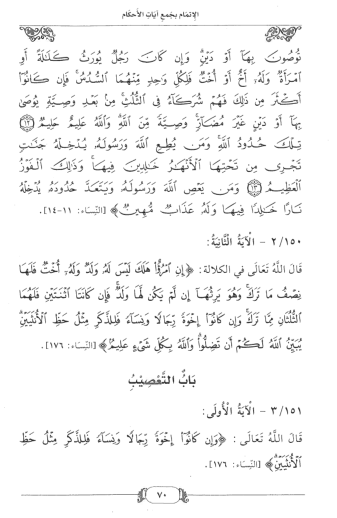 الإتمام بجمع آيات الأحكام
تُوصُونَ بِهَآ أَوۡ دَيۡنٖۗ وَإِن كَانَ رَجُلٞ يُورَثُ كَلَٰلَةً أَوِ
ٱمۡرَأَةٞ وَلَهُۥٓ أَخٌ أَوۡ أُخۡتٞ فَلِكُلِّ وَٰحِدٖ مِّنۡهُمَا ٱلسُّدُسُۚ فَإِن كَانُوٓاْ
أَكۡثَرَ مِن ذَٰلِكَ فَهُمۡ شُرَكَآءُ فِي ٱلثُّلُثِۚ مِنۢ بَعۡدِ وَصِيَّةٖ يُوصَىٰ
بِهَآ أَوۡ دَيۡنٍ غَيۡرَ مُضَآرّٖۚ وَصِيَّةٗ مِّنَ ٱللَّهِۗ وَٱللَّهُ عَلِيمٌ حَلِيمٞ ١٢
تِلۡكَ حُدُودُ ٱللَّهِۚ وَمَن يُطِعِ ٱللَّهَ وَرَسُولَهُۥ يُدۡخِلۡهُ جَنَّٰتٖ
تَجۡرِي مِن تَحۡتِهَا ٱلۡأَنۡهَٰرُ خَٰلِدِينَ فِيهَاۚ وَذَٰلِكَ ٱلۡفَوۡزُ
ٱلۡعَظِيمُ ١٣ وَمَن يَعۡصِ ٱللَّهَ وَرَسُولَهُۥ وَيَتَعَدَّ حُدُودَهُۥ يُدۡخِلۡهُ
نَارًا خَٰلِدٗا فِيهَا وَلَهُۥ عَذَابٞ مُّهِينٞ﴾ [النِّسَاء: ١١-١٤].
٢/١٥٠ - الآيَةُ الثَّانِيَةُ:
قَالَ اللَّهُ تَعَالَى في الكلالة: ﴿إِنِ ٱمۡرُؤٌاْ هَلَكَ لَيۡسَ لَهُۥ وَلَدٞ وَلَهُۥٓ أُخۡتٞ فَلَهَا
نِصۡفُ مَا تَرَكَۚ وَهُوَ يَرِثُهَآ إِن لَّمۡ يَكُن لَّهَا وَلَدٞۚ فَإِن كَانَتَا ٱثۡنَتَيۡنِ فَلَهُمَا
ٱلثُّلُثَانِ مِمَّا تَرَكَۚ وَإِن كَانُوٓاْ إِخۡوَةٗ رِّجَالٗا وَنِسَآءٗ فَلِلذَّكَرِ مِثۡلُ حَظِّ ٱلۡأُنثَيَيۡنِۗ
يُبَيِّنُ ٱللَّهُ لَكُمۡ أَن تَضِلُّواْۗ وَٱللَّهُ بِكُلِّ شَيۡءٍ عَلِيمُۢ﴾ [النِّسَاء: ١٧٦].
بَابُ التَّعْصِيْبِ
٣/١٥١ - الآيَةُ الأُولَى:
قَالَ اللَّهُ تَعَالَى: ﴿وَإِن كَانُوٓاْ إِخۡوَةٗ رِّجَالٗا وَنِسَآءٗ فَلِلذَّكَرِ مِثۡلُ حَظِّ
ٱلۡأُنثَيَيۡنِۗ﴾ [النِّسَاء: ١٧٦].
٧٠